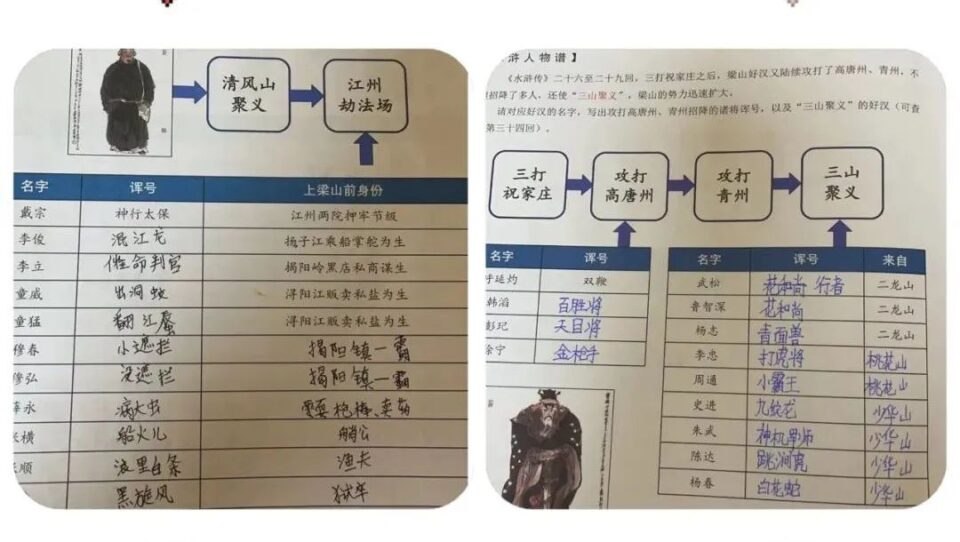 清风山
聚义
江州
劫法场
名字 诨号 上梁山前身份
戴宗 神行太保 江州两院押牢节级
李俊 混江龙 扬子江乘船掌舵为生
李立 催命判官 揭阳岭黑店私商谋生
童威 出洞蛟 浔阳江贩卖私盐为生
童猛 翻江蜃 浔阳江贩卖私盐为生
穆春 小遮拦 揭阳镇一霸
穆弘 没遮拦 揭阳镇一霸
薛永 病大虫 耍枪棒卖药
张横 船火儿 艄公
张顺 浪里白条 渔夫
黑旋风 狱卒
浒人物谱】
《水浒传》二十六至二十九回，三打祝家庄之后，梁山好汉又陆续攻打了高唐州、青州，不
招降了多人，还使“三山聚义”，梁山的势力迅速扩大。
请对应好汉的名字，写出攻打高唐州、青州招降的诸将诨号，以及“三山聚义”的好汉（可查
第三十四回）。
三打
祝家庄
攻打
高唐州
攻打
青州
三山
聚义
名字 诨号
呼延灼 双鞭
韩滔 百胜将
彭玘 天目将
徐宁 金枪手
名字 诨号 来自
武松 花和尚 行者 二龙山
鲁智深 花和尚 二龙山
杨志 青面兽 二龙山
李忠 打虎将 桃花山
周通 小霸王 桃花山
史进 九纹龙 少华山
朱武 神机军师 少华山
陈达 跳涧虎 少华山
杨春 白花蛇 少华山